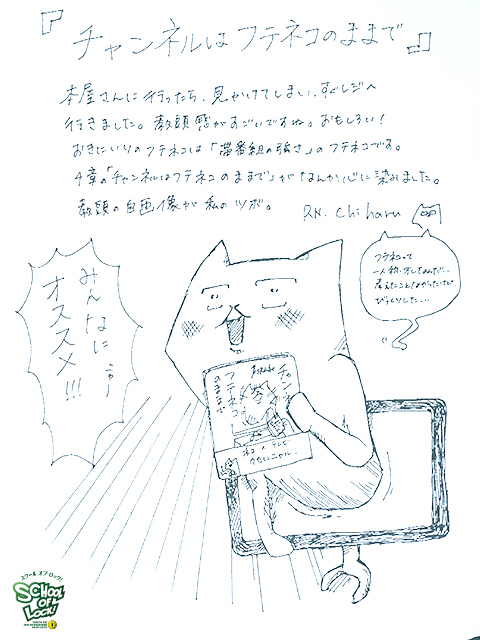 『チャンネルはフテネコのままで』
本屋さんに行ったら、見かけてしまい、すぐレジへ
行きました。教頭感がすごいですね。おもしろい!
おきにいりのフテネコは「帯番組の強さ」のフテネコです。
4章の「チャンネルはフテネコのままで」がなんか心に染みました。
教頭の自画像が私のツボ。
RN. chiharu
フテネコって
一人称、オレなんだ…
考えたことなかったけど
びっくりした…
みんなに
オススメ!!!
チャンネルは
フテネコ
のままで
スクール オブ ロック!
SCHOOL
OF
LOCK!